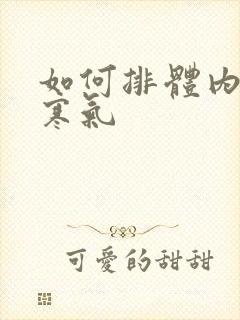 如何排體內
寒氣
可愛的甜甜